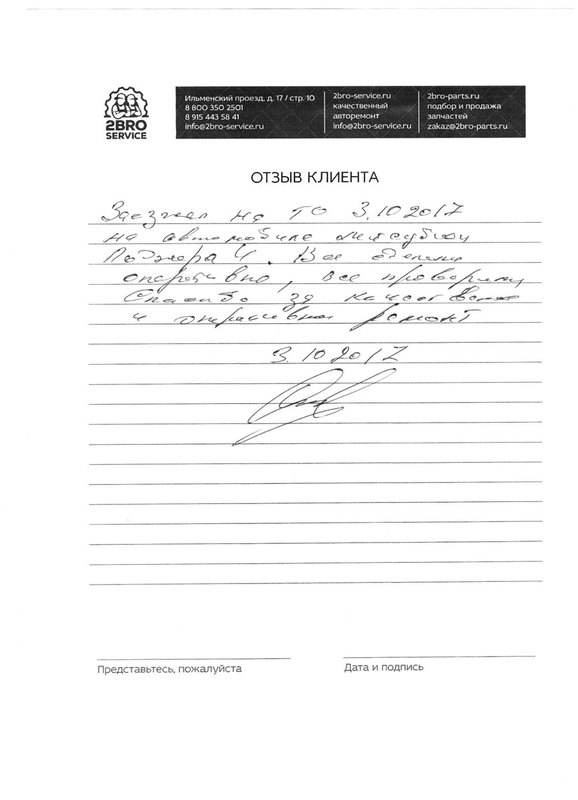 2BRO
SERVICE
Ильменский проезд, д. 17 / стр. 10
8 800 350 2501
8 915 443 58 41
info@2bro-service.ru
2bro-service.ru
качественный
авторемонт
info@2bro-service.ru
2bro-parts.ru
подбор и продажа
запчастей
zakaz@2bro-parts.ru
ОТЗЫВ КЛИЕНТА
Заезжал на ТО 3.10 2017
на автомобиле митсубиси
Паджеро 4. Все сделали
оперативно, все проверили
Спасибо за качественное
и оперативной ремонт
3.10 2017
Представьтесь, пожалуйста
Дата и подпись